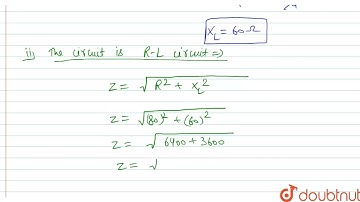 X_L = 60 Ω
ii) The circuit is R-L circuit ⇒
Z = √(R² + X_L²)
Z = √((80)² + (60)²)
Z = √(6400 + 3600)
Z = √
doubtnut